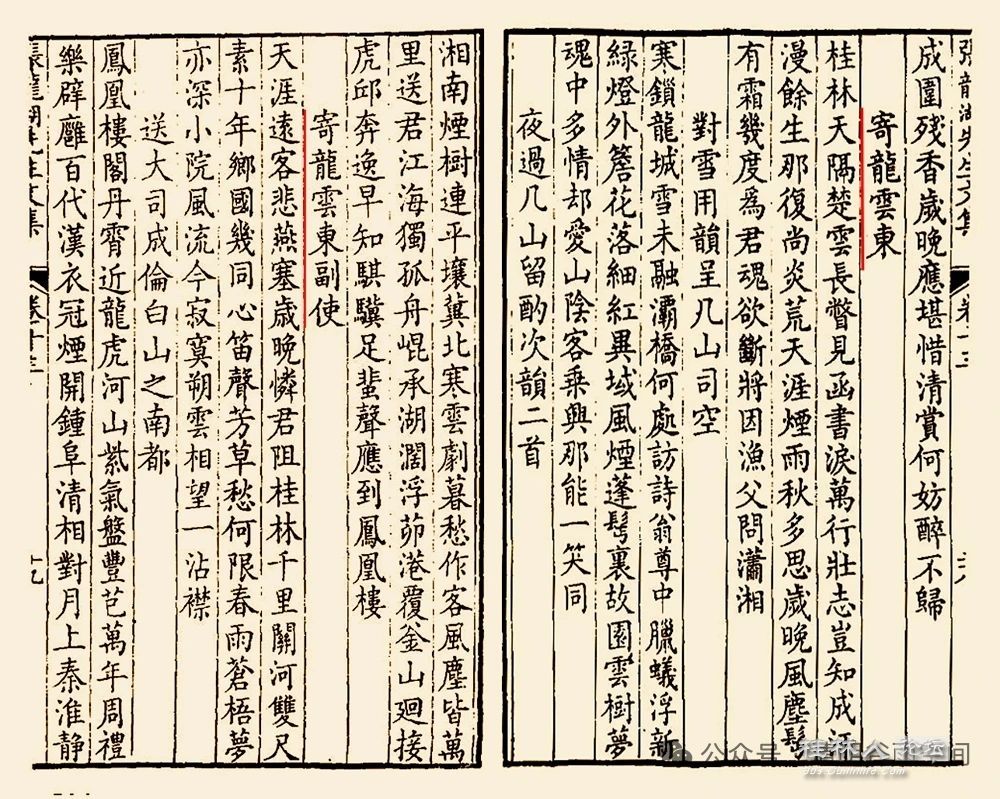 張龍湖先生文集 卷十三 十八
成圍殘香歲晚應堪惜清賞何妨醉不歸
寄龍雲東
桂林天隔楚雲長瞥見函書淚萬行壯志豈知成汗
漫餘生那復尚炎荒天涯煙雨秋多思歲晚風塵鬢
有霜幾度為君魂欲斷將因漁父問瀟湘
對雪用韻呈几山司空
寒鎖龍城雪未融灞橋何處訪詩翁尊中臘蟻浮新
綠燈外簷花落細紅異域風煙蓬鬢裏故園雲樹夢
魂中多情却愛山陰客乘興那能一笑同
夜過几山留酌次韻二首
湘南煙樹連平壤冀北寒雲劇暮愁作客風塵皆萬
里送君江海獨孤舟崐承湖濶浮茆港覆釡山廻接
虎邱奔逸早知騏驥足蜚聲應到鳳凰樓
寄龍雲東副使
天涯遠客悲燕塞歲晚憐君阻桂林千里關河雙尺
素十年鄉國幾同心笛聲芳草愁何限春雨蒼梧夢
亦深小院風流今寂寞朔雲相望一沾襟
送大司成倫白山之南都
鳳凰樓閣丹霄近龍虎河山紫氣盤豐芑萬年周禮
樂辟廱百代漢衣冠煙開鍾阜清相對月上秦淮靜
張龍湖先生文集 卷十三 十九
公众号 空间
桂林人论坛